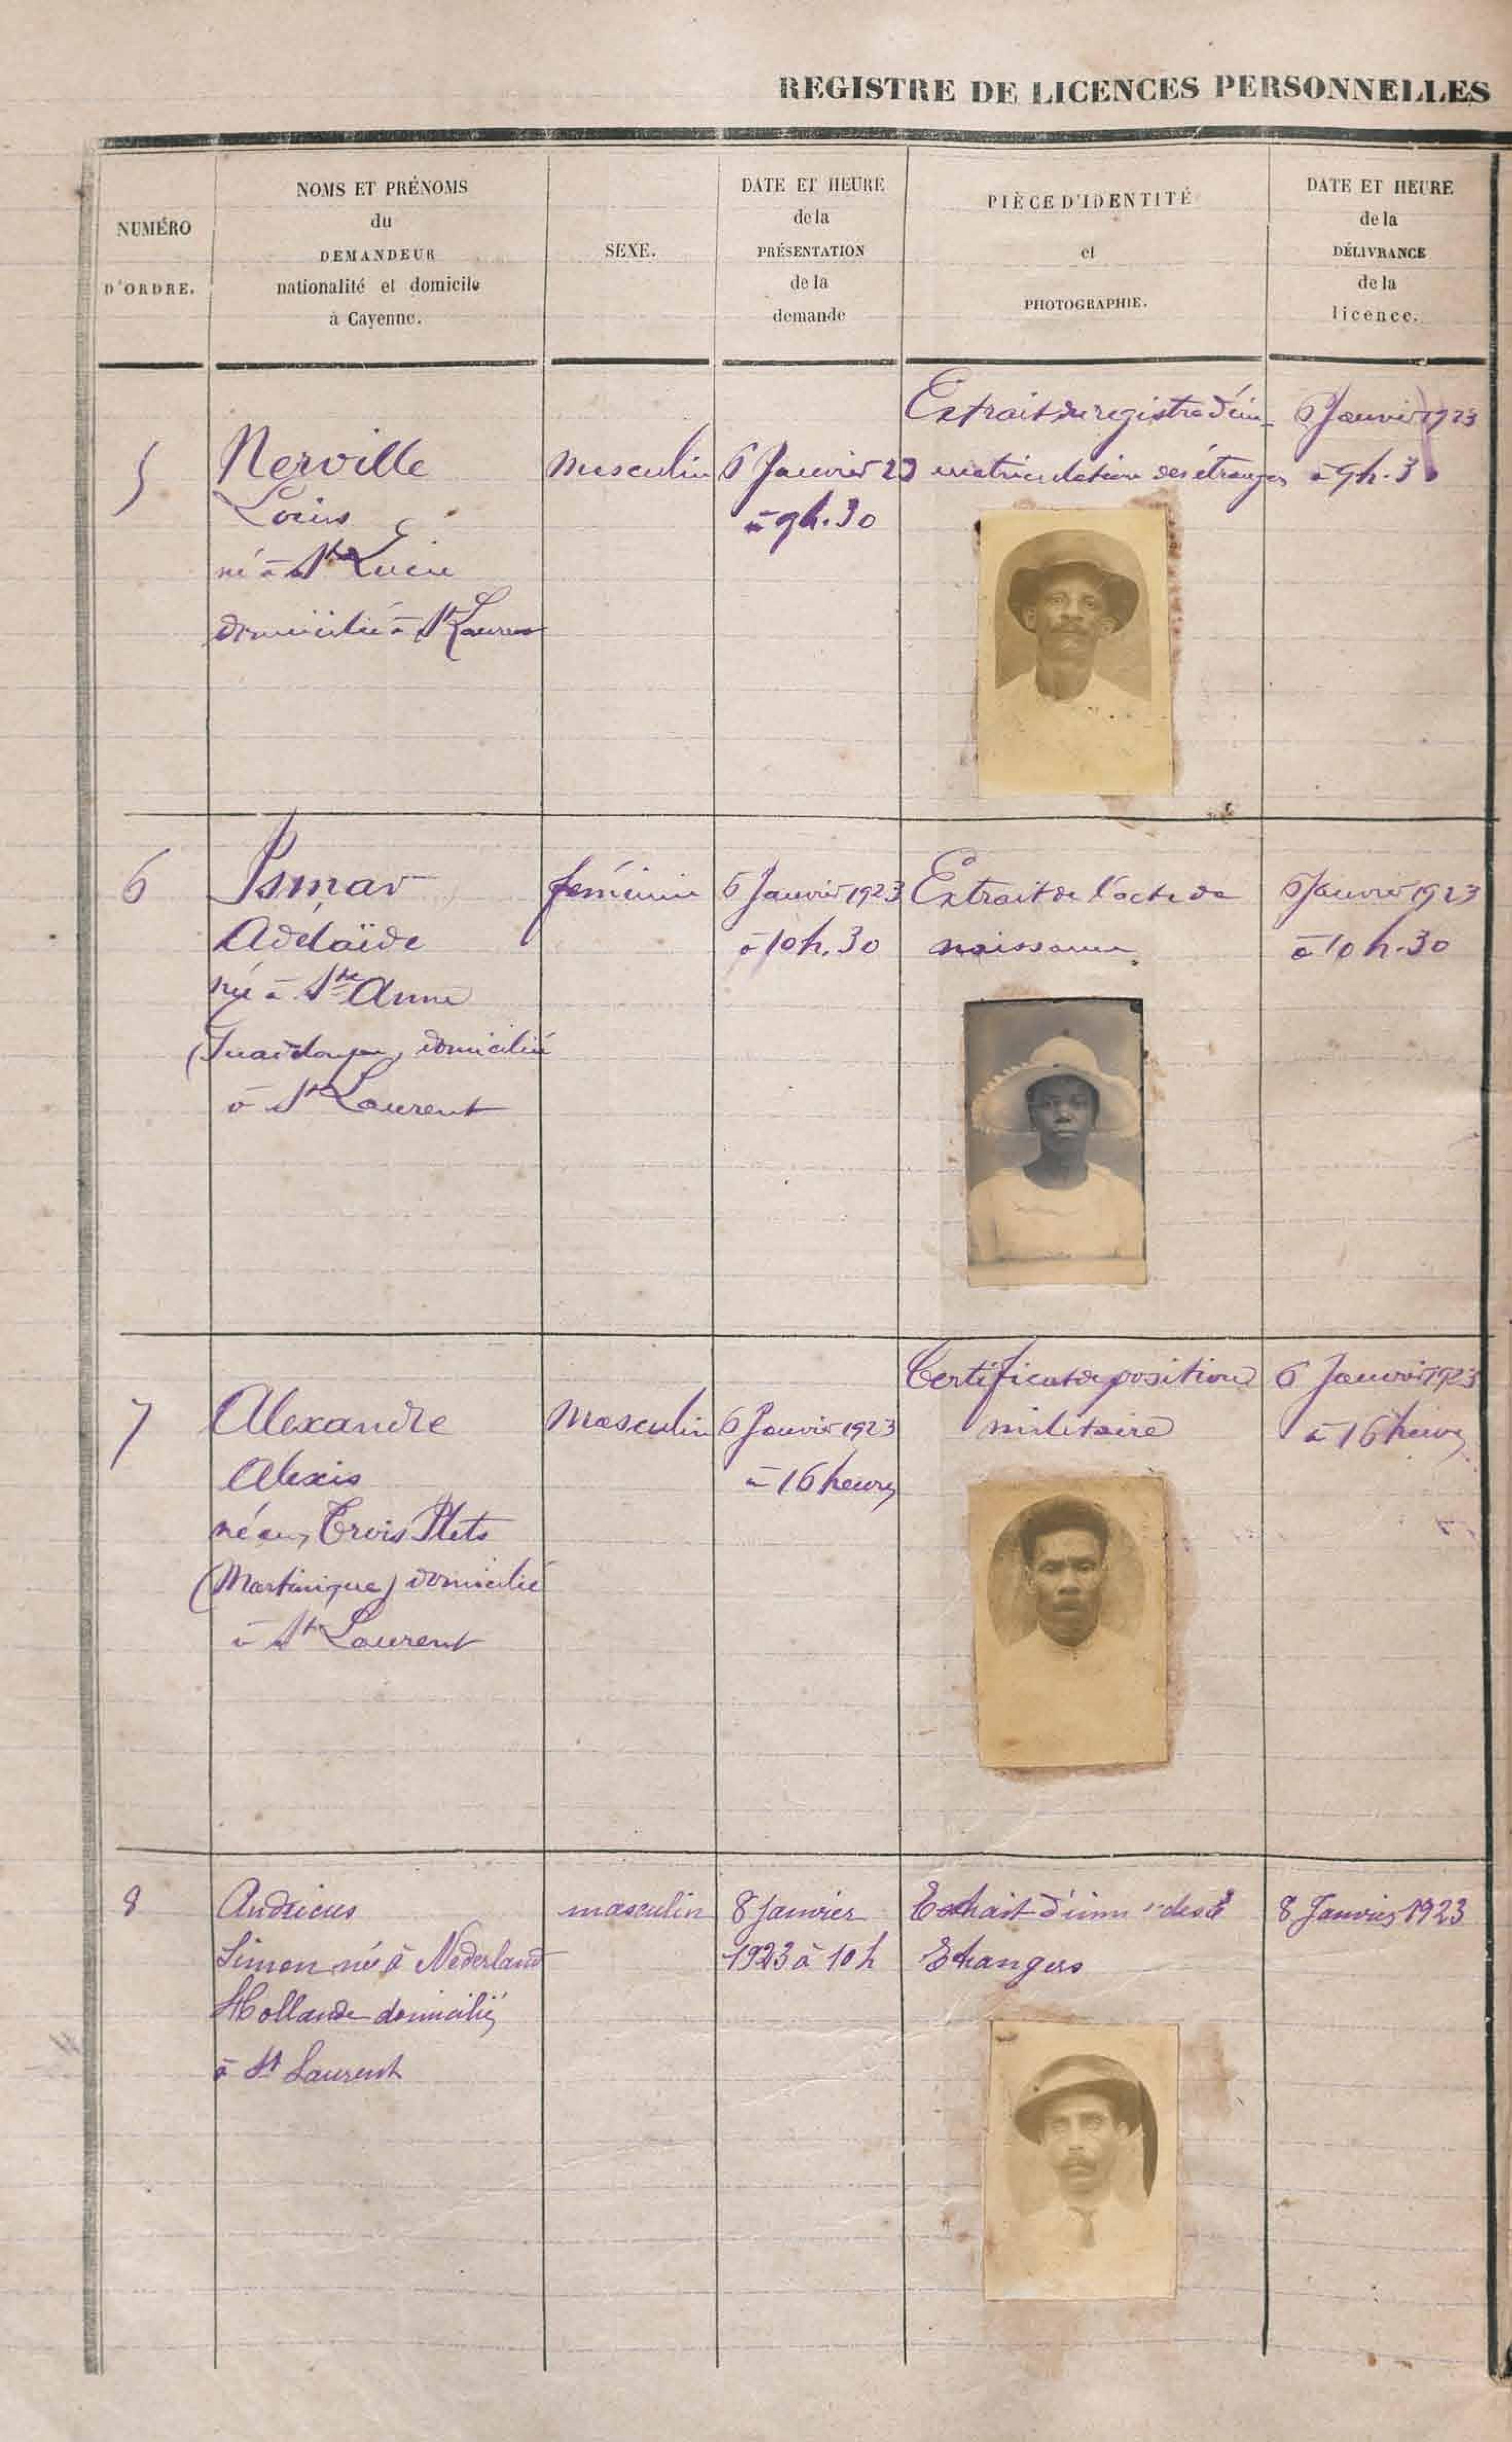 REGISTRE DE LICENCES PERSONNELLES
NUMÉRO
D'ORDRE.
NOMS ET PRÉNOMS
du
DEMANDEUR
nationalité et domicile
à Cayenne.
SEXE.
DATE ET HEURE
de la
PRÉSENTATION
de la
demande
PIÈCE D'IDENTITÉ
et
PHOTOGRAPHIE.
DATE ET HEURE
de la
DÉLIVRANCE
de la
licence.
5
Nerville
Louis
né à Ste Lucie
domicilié à St Laurent
masculin
6 Janvier 23
à 9h.30
Extrait du registre d'im-
matriculation des étrangers
6 Janvier 1923
à 9h.30
6
Ismar
Adélaïde
née à Ste Anne
(Guadeloupe) domiciliée
à St Laurent
féminin
6 Janvier 1923
à 10h.30
Extrait de l'acte de
naissance
6 Janvier 1923
à 10h.30
7
Alexandre
Alexis
né aux Trois Ilets
(Martinique) domicilié
à St Laurent
Masculin
6 Janvier 1923
à 16 heures
Certificat de position
militaire
6 Janvier 1923
à 16 heures
8
Andricus
Simon né à Nederland
Hollande domicilié
à St Laurent
masculin
8 Janvier
1923 à 10h
Extrait d'imm
Etrangers
8 Janvier 1923